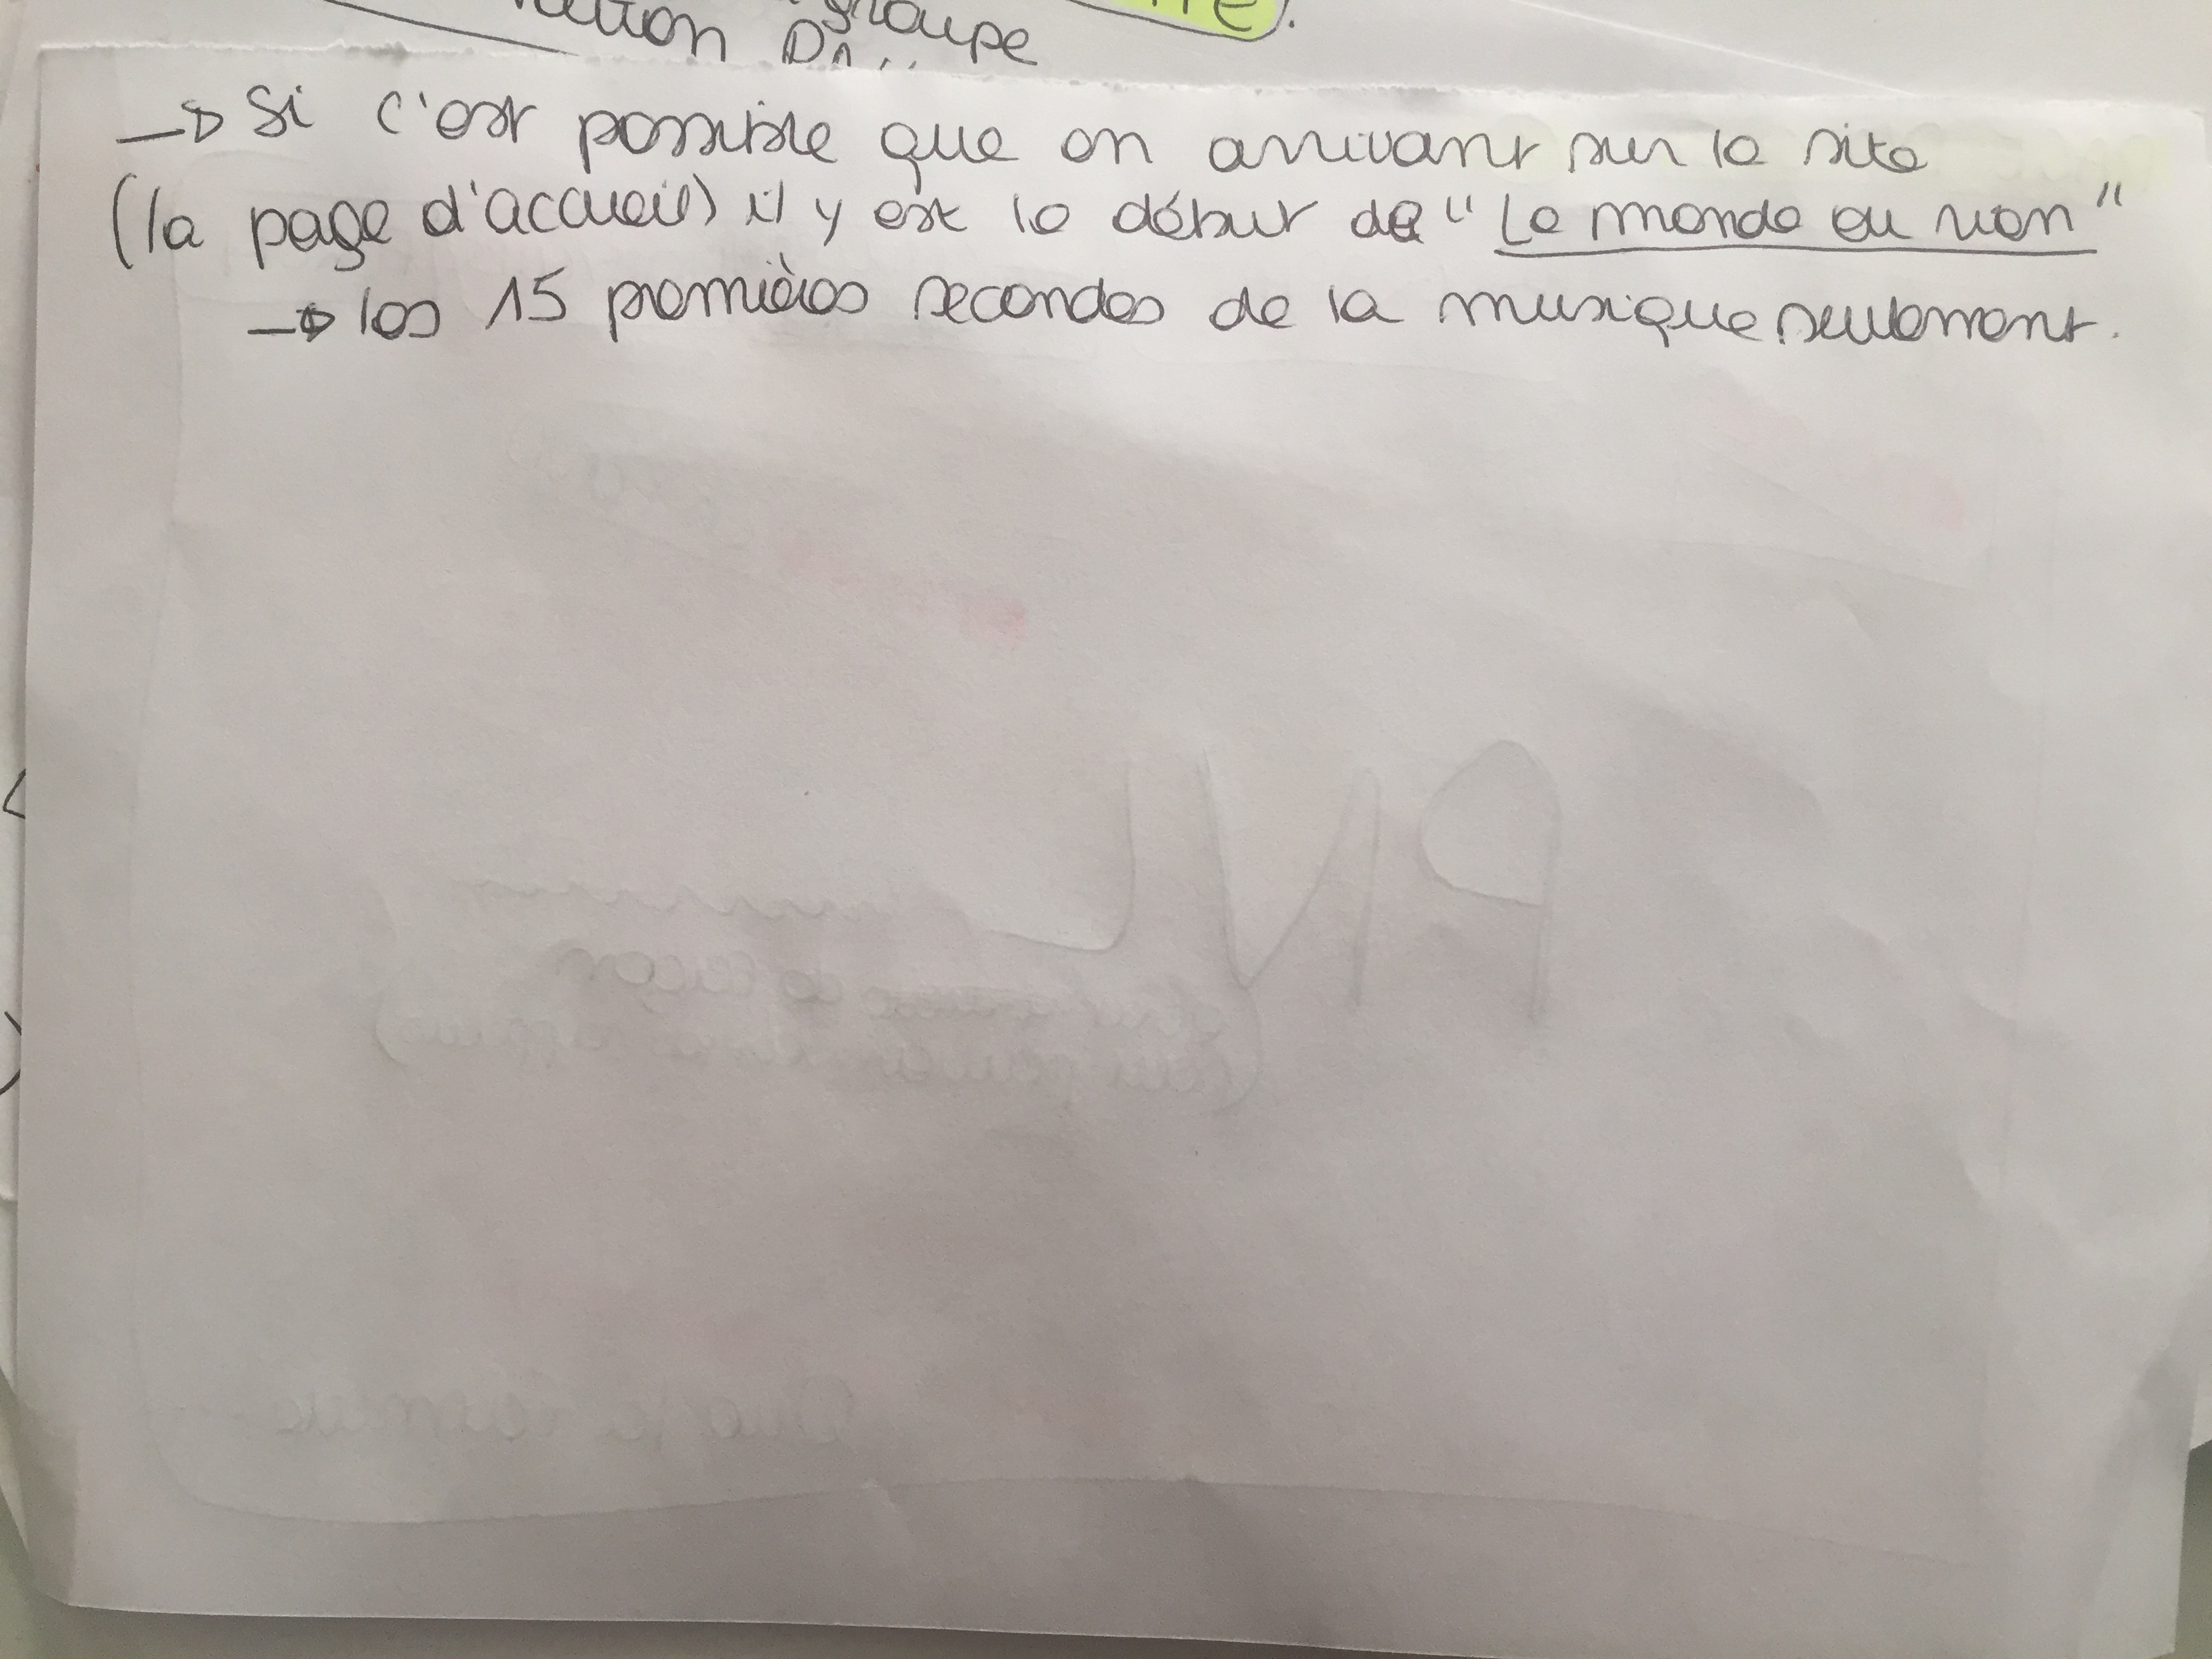 groupe
nection D
→ Si c'est possible que en arrivant sur le site
(la page d'accueil) il y est le début de "Le monde ou rien"
→ les 15 premières secondes de la musique seulement.